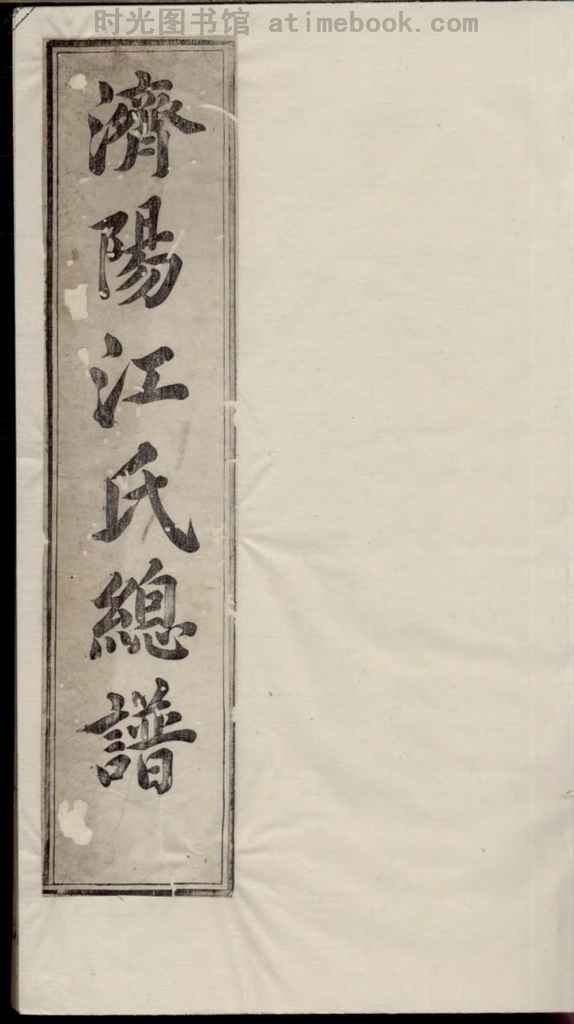 时光图书馆 atimebook.com
濟陽江氏總譜